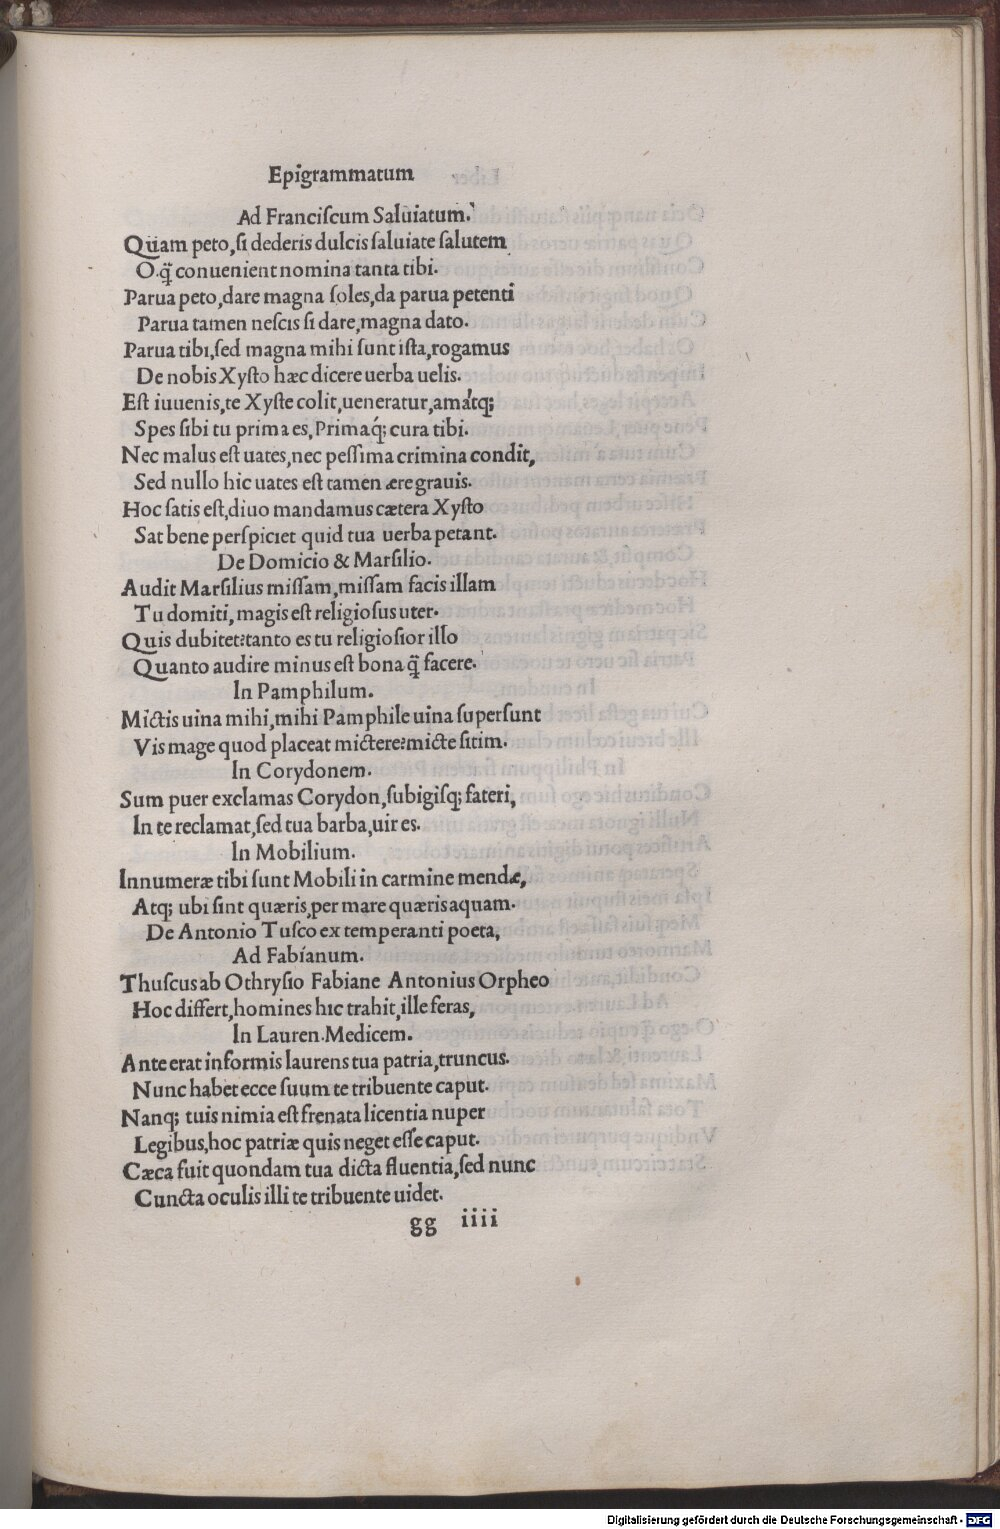 Epigrammatum
Ad Franciſcum Saluiatum.
Quam peto,ſi dederis dulcis ſaluiate ſalutem
O.q̃ conuenient nomina tanta tibi.
Parua peto,dare magna ſoles,da parua petenti
Parua tamen neſcis ſi dare,magna dato.
Parua tibi,ſed magna mihi ſunt iſta,rogamus
De nobis Xyſto hæc dicere uerba uelis.
Eſt iuuenis,te Xyſte colit,ueneratur,amátq;
Spes ſibi tu prima es,Primaq́; cura tibi.
Nec malus eſt uates,nec peſſima crimina condit,
Sed nullo hic uates eſt tamen ære grauis.
Hoc ſatis eſt,diuo mandamus cætera Xyſto
Sat bene perſpiciet quid tua uerba petant.
De Domicio & Marſilio.
Audit Marſilius miſſam,miſſam facis illam
Tu domiti,magis eſt religioſus uter.
Quis dubitet?tanto es tu religioſior illo
Quanto audire minus eſt bona q̃ facere.
In Pamphilum.
Mictis uina mihi,mihi Pamphile uina ſuperſunt
Vis mage quod placeat mictere?micte ſitim.
In Corydonem.
Sum puer exclamas Corydon,ſubigiſq; fateri,
In te reclamat,ſed tua barba,uir es.
In Mobilium.
Innumeræ tibi ſunt Mobili in carmine mendæ,
Atq; ubi ſint quæris,per mare quæris aquam.
De Antonio Tuſco ex temperanti poeta,
Ad Fabianum.
Thuſcus ab Othryſio Fabiane Antonius Orpheo
Hoc differt,homines hic trahit,ille feras,
In Lauren.Medicem.
Ante erat informis laurens tua patria,truncus.
Nunc habet ecce ſuum te tribuente caput.
Nanq; tuis nimia eſt frenata licentia nuper
Legibus,hoc patriæ quis neget eſſe caput.
Cæca fuit quondam tua dicta fluentia,ſed nunc
Cuncta oculis illi te tribuente uidet.
gg iiii
Digitalisierung gefördert durch die Deutsche Forschungsgemeinschaft - DFG